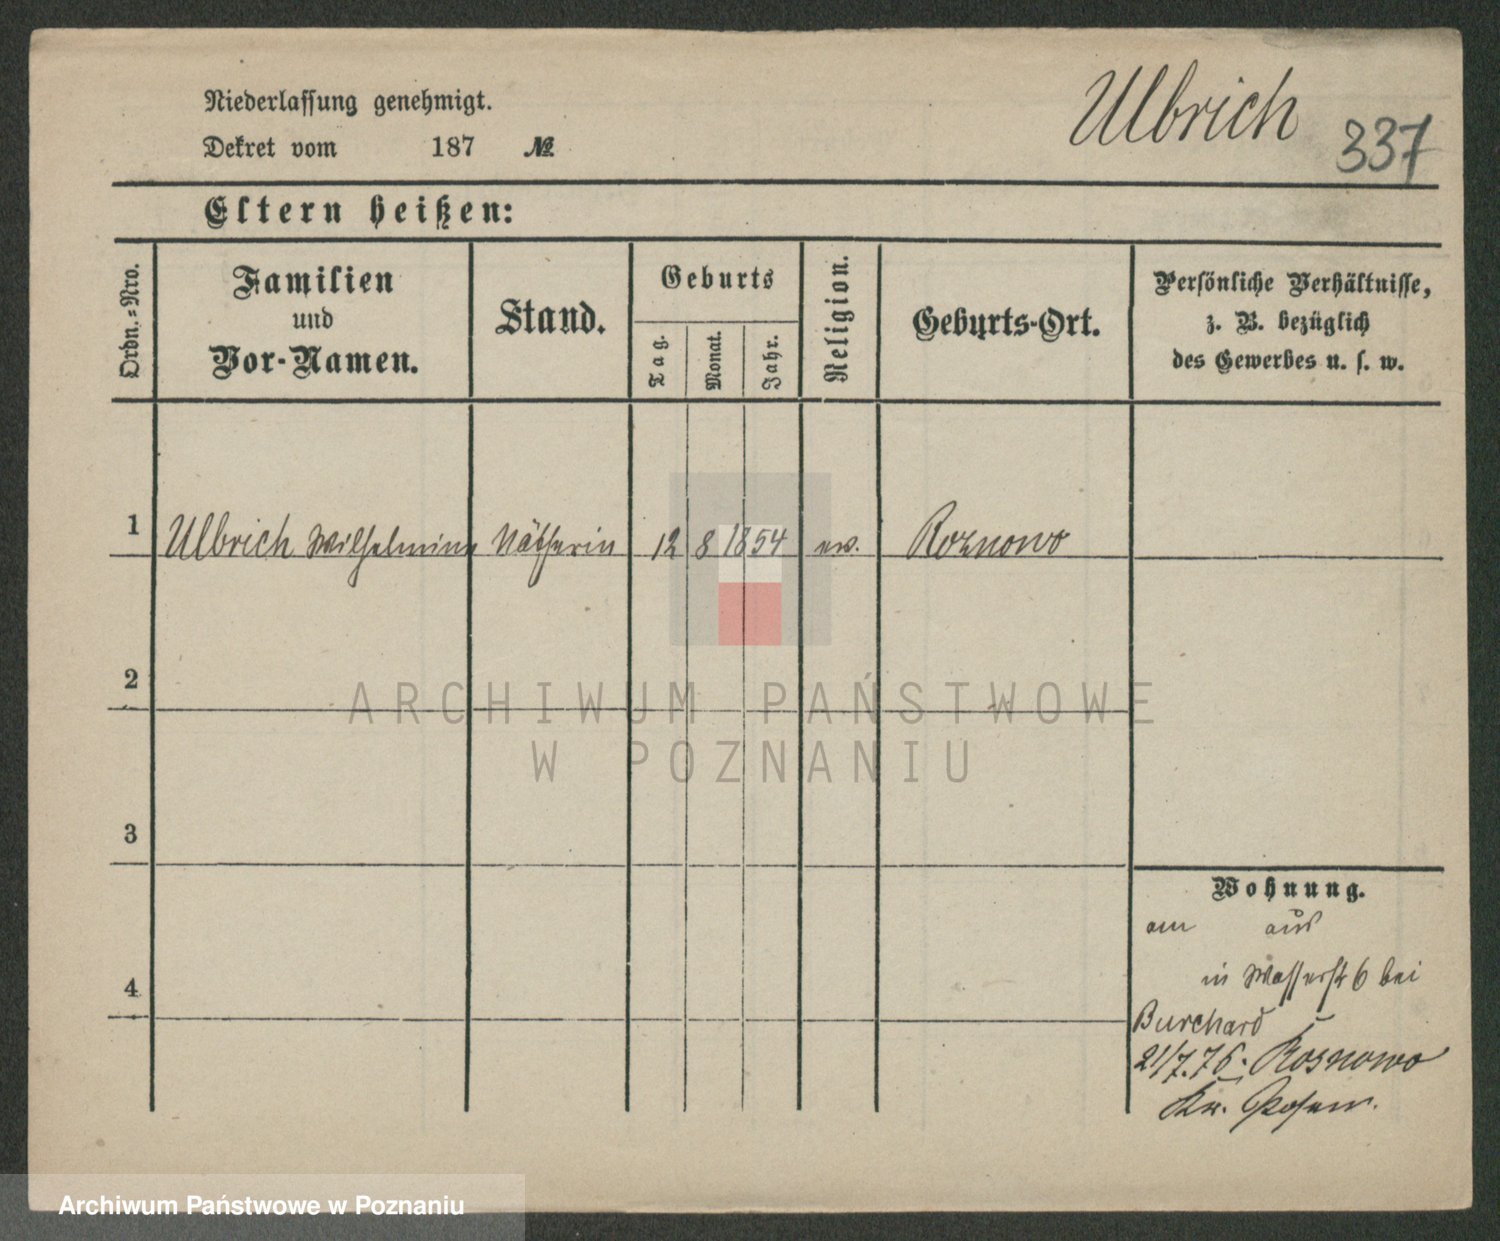 Niederlassung genehmigt.
Dekret vom 187 №
Ulbrich 337
Eltern heißen:
Ordn.=Nro.
Familien
und
Vor-Namen.
Stand.
Geburts
Tag.
Monat.
Jahr.
Religion.
Geburts-Ort.
Persönliche Verhältnisse,
z. B. bezüglich
des Gewerbes u. s. w.
1 Ulbrich Wilhelmine Nätherin 12 8 1854 ev. Roznowo
2
3
4
Wohnung.
am aus
in Wasserstr 6 bei
Burchard
21/7.76. Rosnowo
Kr. Posen.
ARCHIWUM PAŃSTWOWE
W POZNANIU
Archiwum Państwowe w Poznaniu